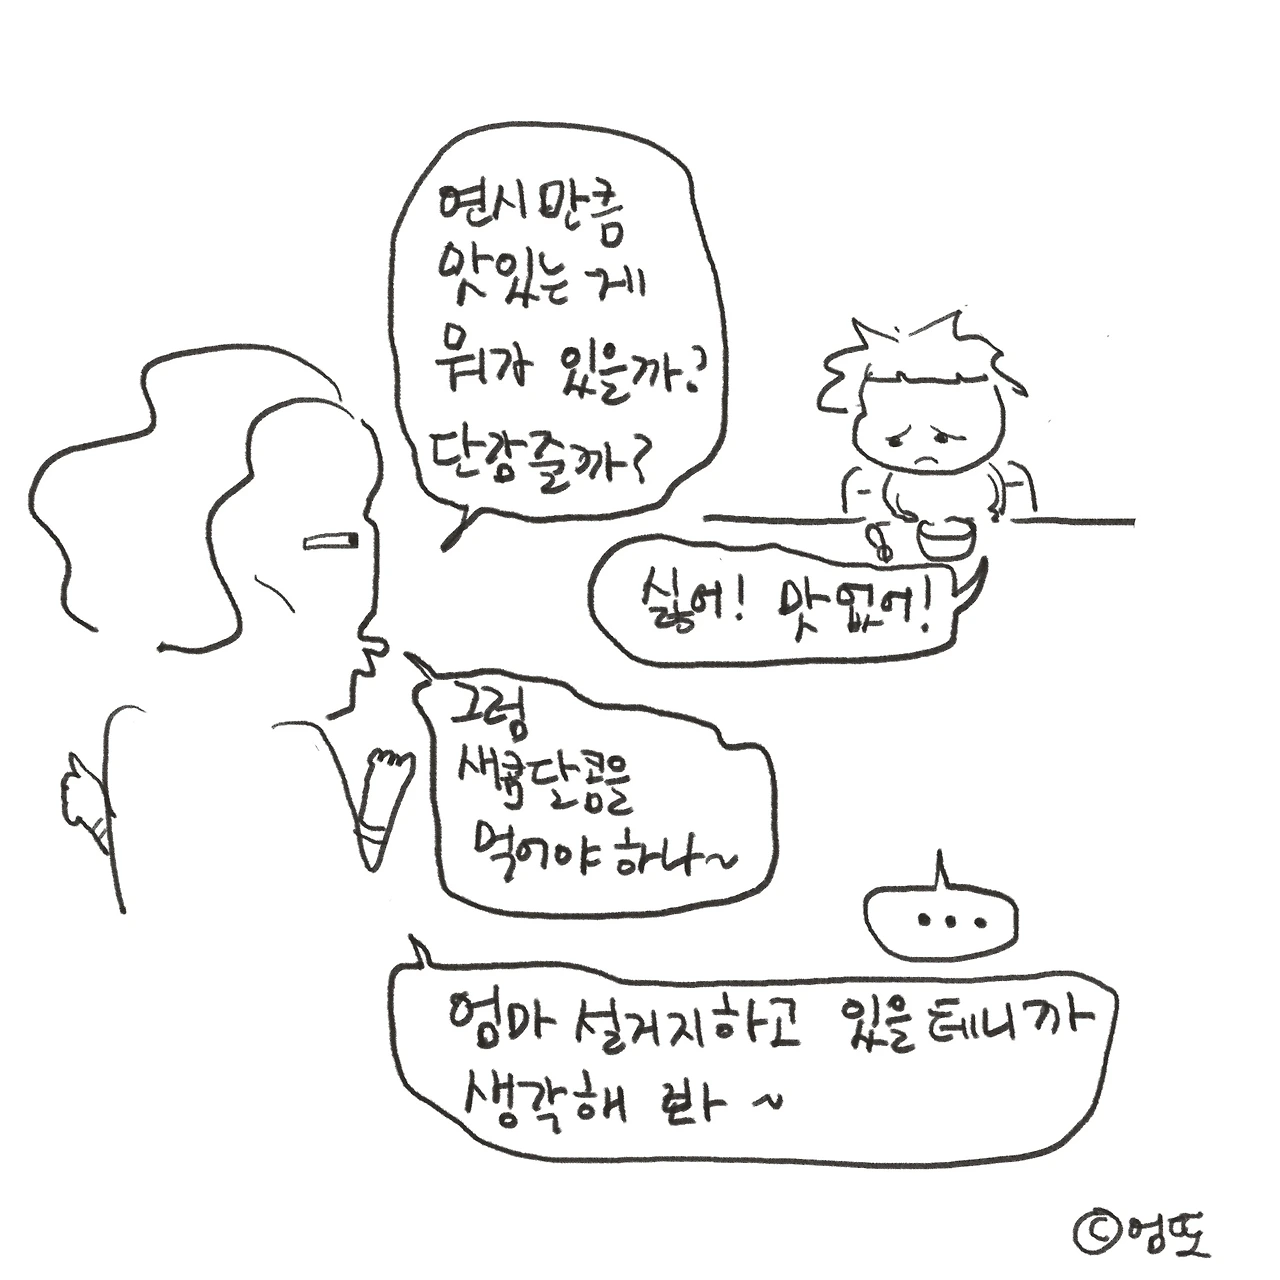 연시만큼
맛있는 게
뭐가 있을까?
단감줄까?
싫어! 맛없어!
그럼
새콤달콤을
먹어야하나~
...
엄마 설거지하고 있을테니까
생각해 봐~
©엄또